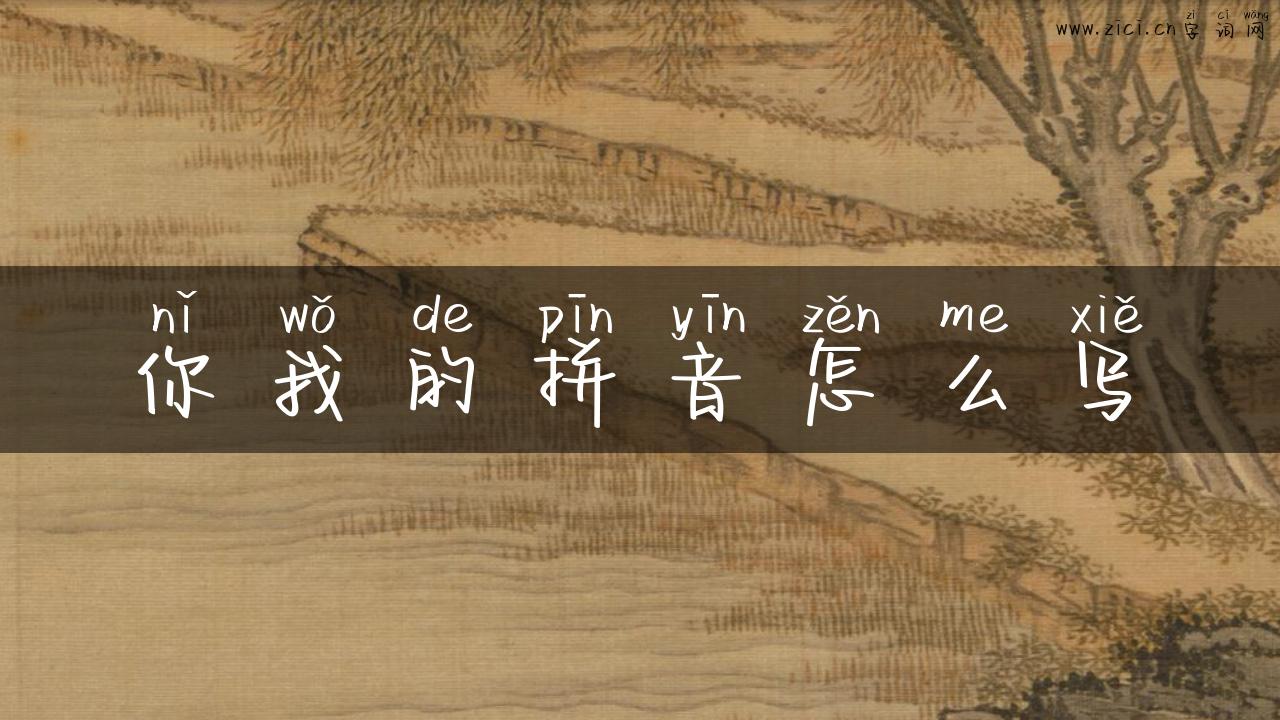 zì cí wǎng
www.zici.cn字词网
nǐ wǒ de pīn yīn zěn me xiě
你我的拼音怎么写